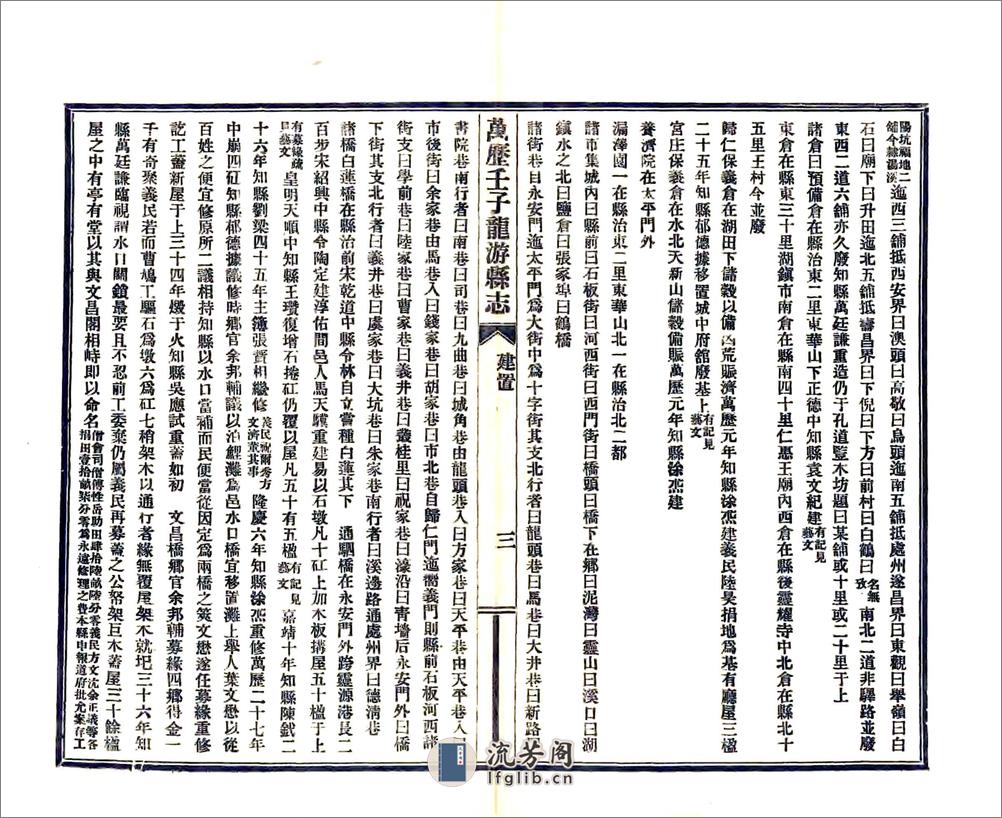 陽坑福地二
舖今隸湯溪
迤西三舖抵西安界曰澳頭曰高敬曰烏頭迤南五舖抵處州遂昌界曰東觀曰舉嶺曰白
石曰廟下曰升田迤北五舖抵壽昌界曰下倪曰下方曰前村曰白鶴曰
名無
攷
南北二道非驛路並廢
東西二道六舖亦久廢知縣萬廷謙重造仍于孔道豎木坊題曰某舖或十里或二十里于上
諸倉曰預備倉在縣治東二里東華山下正德中知縣袁文紀建
有記見
藝文
東倉在縣東三十里湖鎮市南倉在縣南四十里仁惠王廟內西倉在縣後靈耀寺中北倉在縣北十
五里王村今並廢
歸仁保義倉在湖田下儲穀以備凶荒賑濟萬歷元年知縣徐杰建義民陸昊捐地爲基有廳屋三楹
二十五年知縣郁德據移置城中府舘廢基上
有記見
藝文
宮庄保義倉在水北天新山儲穀備賑萬歷元年知縣徐杰建
養濟院在太平門外
漏澤園一在縣治東二里東華山北一在縣治北二都
諸市集城內曰縣前曰石板街曰河西街曰西門街曰橋頭曰橋下在鄉曰泥灣曰靈山曰溪口曰湖
鎮水之北曰鹽倉曰張家埠曰鶴橋
諸街巷自永安門迤太平門爲大街中爲十字街其支北行者曰龍頭巷曰馬巷曰大井巷曰新路
萬歷壬子龍游縣志
建置
三
書院巷南行者曰南巷曰司巷曰九曲巷曰城角巷由龍頭巷入曰方家巷曰天平巷由天平巷入
市後街曰余家巷由馬巷入曰錢家巷曰胡家巷曰市北巷自歸仁門迤嚮義門則縣前石板河西諸
街支曰學前巷曰陸家巷曰曹家巷曰義井巷曰叢桂里曰祝家巷曰濠沿曰靑墻后永安門外曰橋
下街其支北行者曰義井巷曰虞家巷曰大坑巷曰朱家巷南行者曰溪邊路通處州界曰德淸巷
諸橋白蓮橋在縣治前宋乾道中縣令林自立嘗種白蓮其下　通駟橋在永安門外跨靈源港長二
百步宋紹興中縣令陶定建淳佑間邑人馬天驥重建易以石墩凡十矼上加木板搆屋五十楹于上
有募緣疏
見藝文
皇明天順中知縣王瓚復增石捲矼仍覆以屋凡五十有五楹
有記見
藝文
嘉靖十年知縣陳鉞二
十六年知縣劉梁四十五年主簿張賢相繼修
義民祝爾秀方
文濟董其事
隆慶六年知縣徐杰重修萬歷二十七年
中崩四矼知縣郁德據議修時鄉官余邦輔議以泊鯉灘爲邑水口橋宜移置灘上舉人葉文懋以從
百姓之便宜修原所二議相持知縣以水口當補而民便當從因定爲兩橋之筴文懋遂任募緣重修
訖工蓋新屋于上三十四年燬于火知縣吳應試重蓋如初　文昌橋鄉官余邦輔募緣四鄉得金一
千有奇聚義民若而曹鳩工驅石爲墩六爲矼七稍架木以通行者緣無覆屋架木就圮三十六年知
縣萬廷謙臨視謂水口關鎖最要且不忍前工委棄仍屬義民再募蓋之公帑架巨木蓋屋三十餘楹
屋之中有亭有堂以其與文昌閣相峙即以命名
僧會司僧傳性岳助田肆拾陸畝陸分零義民方文沈余正議等各
捐田壹拾畝柒分零爲永遠修理之費本縣申報道府批允案存工
流芳阁
lfglib.cn